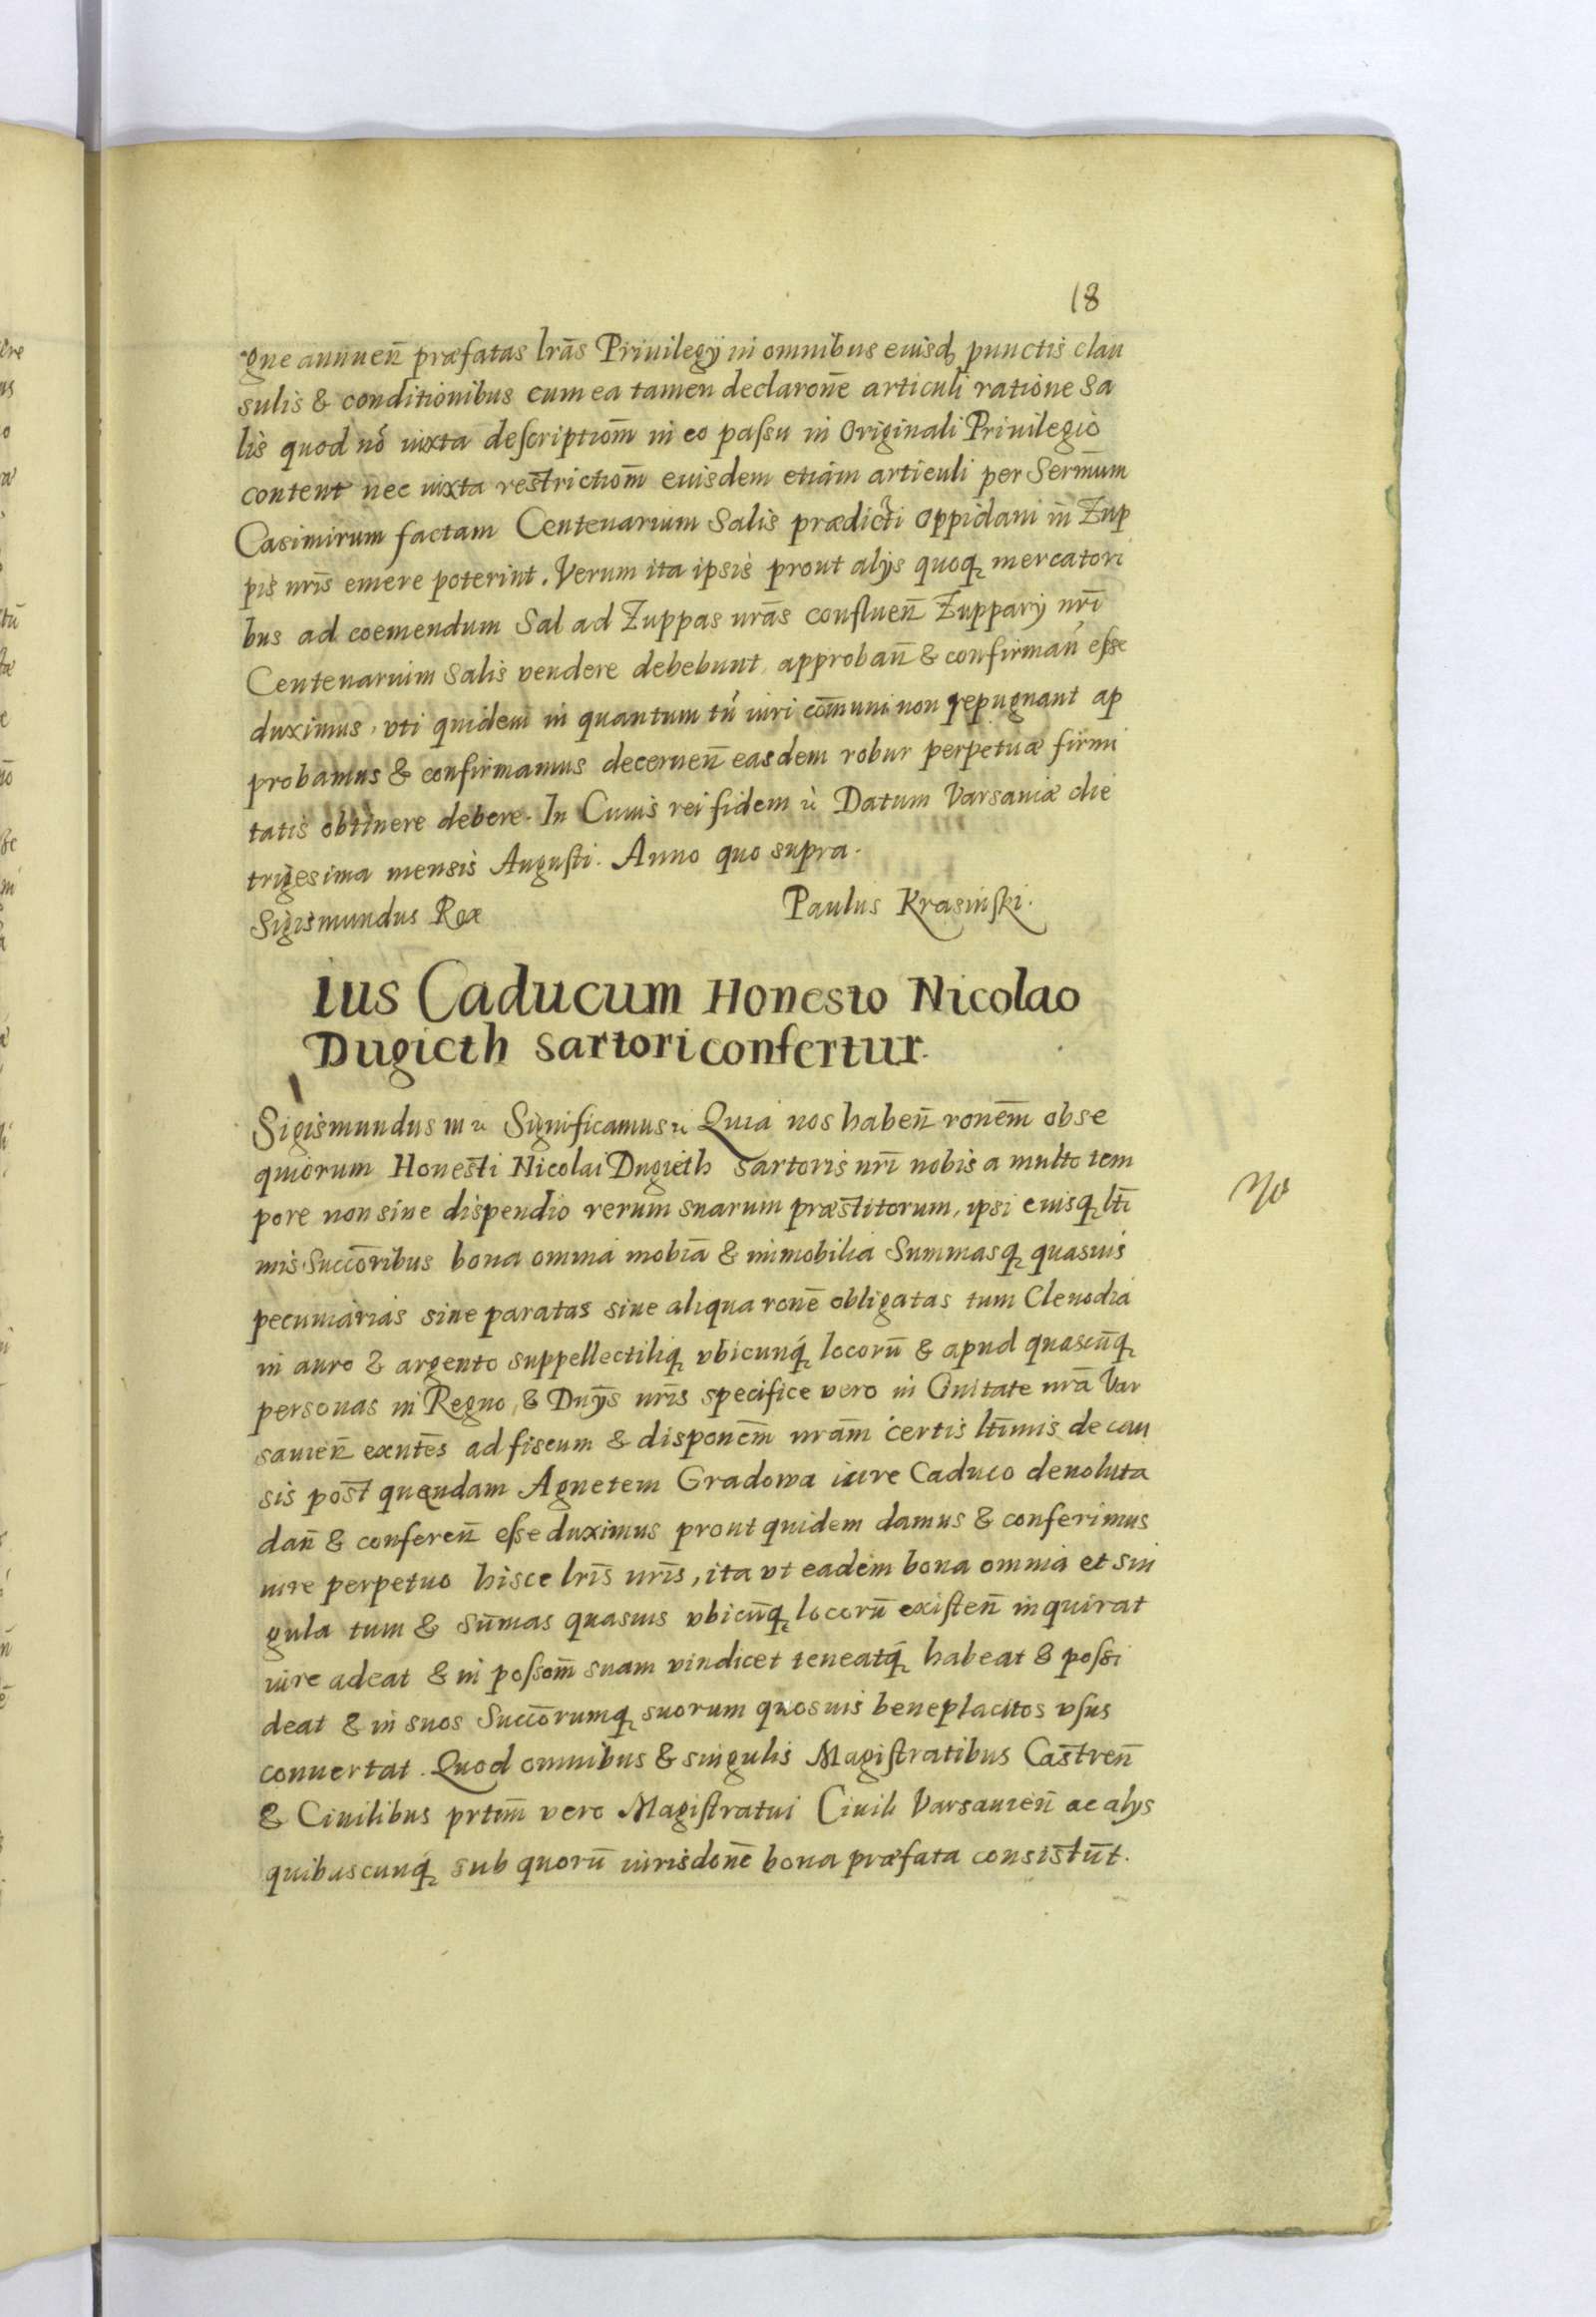 18
gne annuen̄ præfatas lrās Priuilegÿ in omnibus euisdꝫ punctis clau
sulis & conditionibus cum ea tamen declaronē articuli ratione Sa
lis quod nō iuxta descriptiom̄ in eo passu in Originali Priuilegio
content nec iuxta restrictiom̄ euisdem etiam articuli per Serm̄um
Casimirum factam Centenarium Salis prædicti Oppidani in Zup
pis nrīs emere poterint. Verum ita ipsis prout alÿs quoqꝫ mercatori
bus ad coemendum Sal ad Zuppas nrās confluen̄ Zupparÿ nrī
Centenarium Salis vendere debebunt, approban̄ & confirman̄ esse
duximus, vti quidem in quantum tn̄ iuri com̄uni non repugnant ap
probamus & confirmamus decernen̄ easdem robur perpetuæ firmi
tatis obtinere debere. In Cuius rei fidem rc Datum Varsaviæ die
trigesima mensis Augusti. Anno quo supra.
Sigismundus Rex Paulus Krasinski.
Ius Caducum Honesto Nicolao
Dugieth sartori confertur.
Sigismundus III rc Significamus rc Quia nos haben̄ ronem̄ obse
quiorum Honesti Nicolai Dugieth sartoris nrī nobis a multo tem
pore non sine dispendio rerum suarum præstitorum, ipsi euisqꝫ ltī
mis Succōribus bona omnia mobīa & immobilia Summasqꝫ quasuis
pecuniarias siue paratas siue aliqua ronē obligatas tum Clenodia
in auro & argento suppellectiliqꝫ vbicunqꝫ locorū & apud quascūqꝫ
personas in Regno, & Dnȳs nrīs specifice vero in Ciuitate nrā Var
sauien̄ exntēs ad fiscum & disponem̄ nram̄ certis ltīmis de cau
sis post quendam Agnetem Gradowa iure Caduco deuoluta
dan̄ & conferen̄ esse duximus prout quidem damus & conferimus
iure perpetuo hisce lrīs nrīs, ita vt eadem bona omnia et sin
gula tum & sūmas quasuis vbicūqꝫ locorū existen̄ inquirat
iure adeat & in possom̄ suam vindicet teneatqꝫ habeat & possi
deat & in suos Succōrumqꝫ suorum quosuis beneplacitos vsus
conuertat. Quod omnibus & singulis Magistratibus Castren̄
& Ciuilibus prtim̄ vero Magistratui Ciuili Varsauien̄ ac alÿs
quibuscunqꝫ sub quorū iurisdonē bona præfata consistūt.